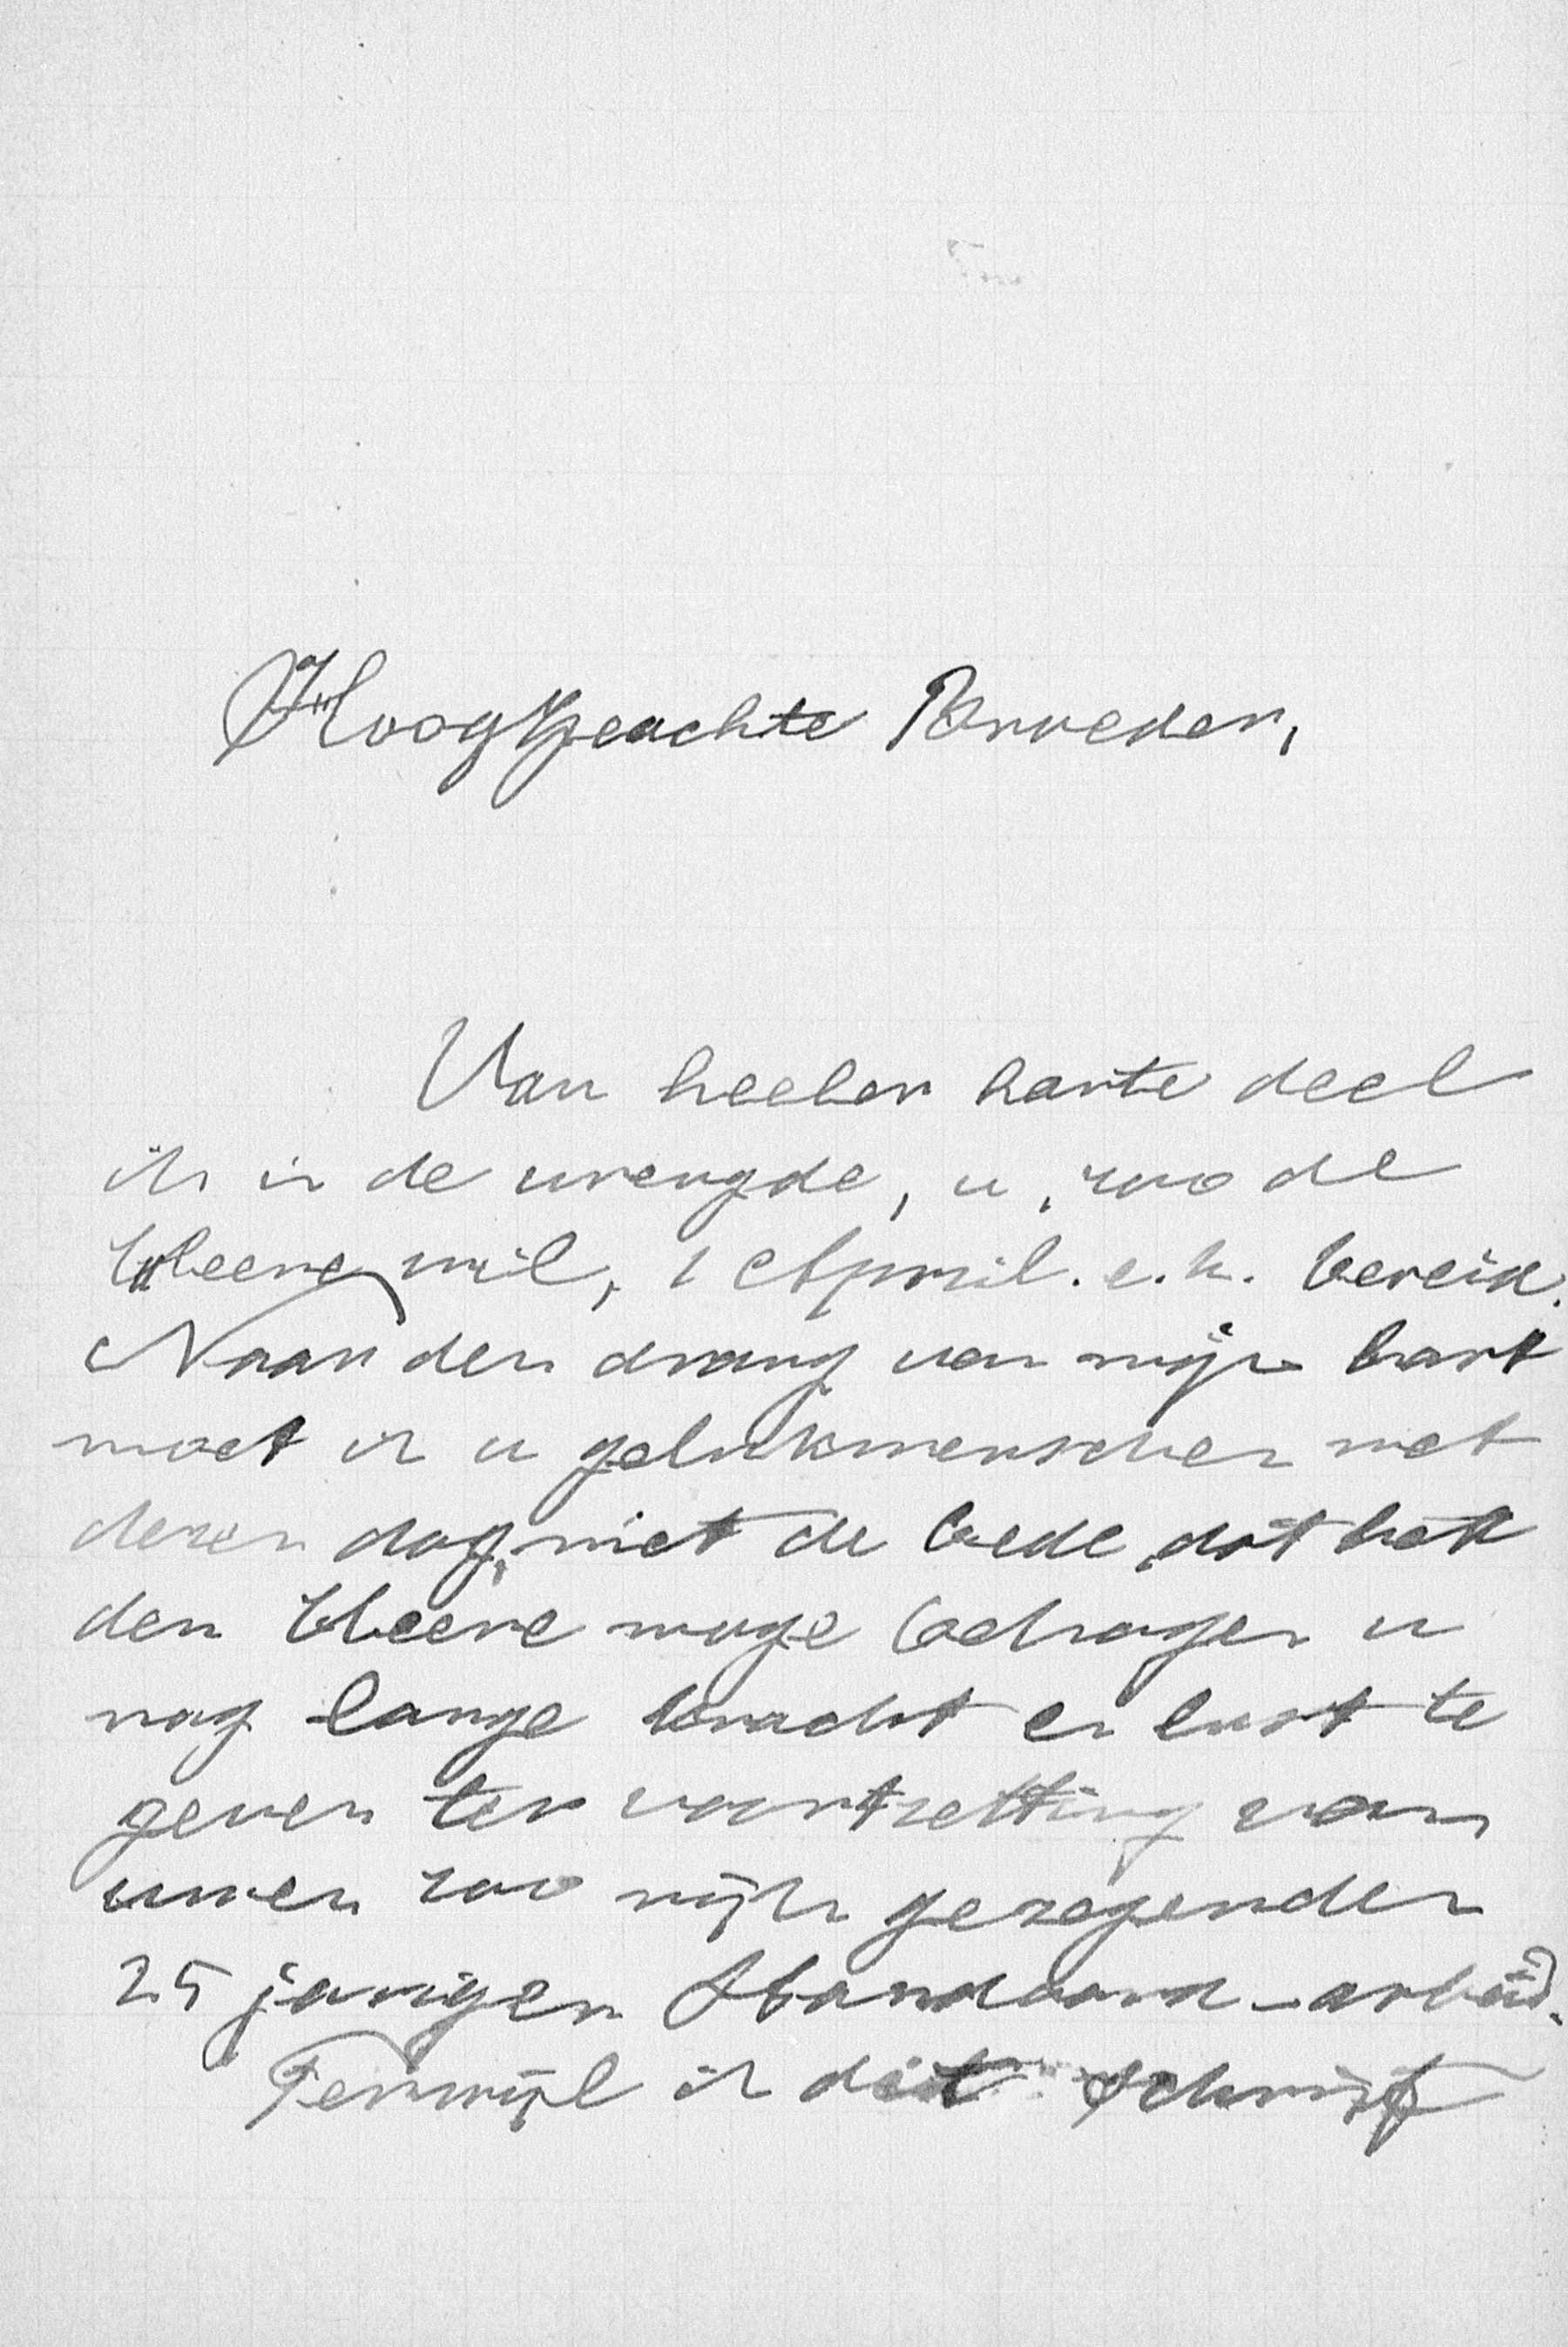 HoogGeachte Broeder,
Van heeler harte deel
ik in de vreugde, u, zoo de
Heere wil, 1 April. e.k. bereid.
Naar den drang van mijn hart
moet ik u gelukwenschen met
dezen dag, met de bede, dat het
den Heere moge behagen u
nog lange kracht en lust te
geven ter voortzetting van
uwen zoo rijk gezegenden
25 jarigen Standaard-arbeid.
Terwijl ik dit schrijf